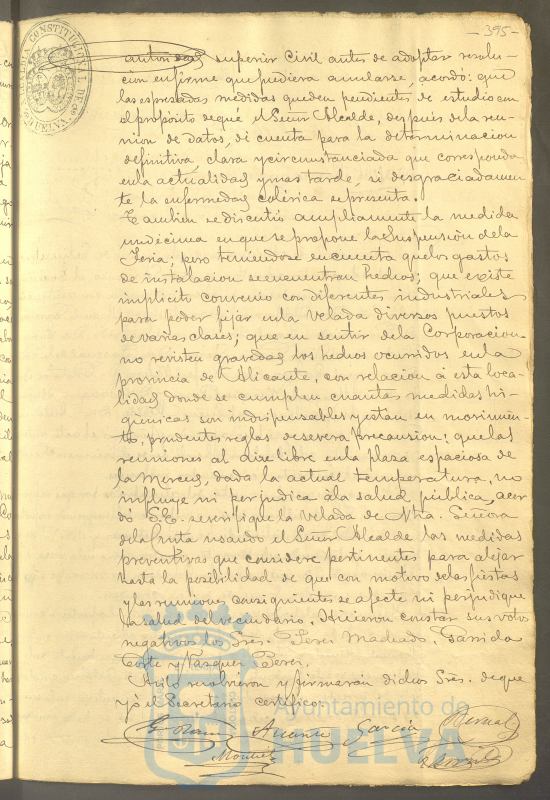 -395-
ALCALDIA CONSTITUCIONAL DE HUELVA
superior Civil antes de adoptar resolu-
cion en firme que pudiera anularse, acordó: que
las expresadas medidas queden pendientes de estudio con
el propósito de que el Señor Alcalde, despues de la reu-
nion de datos, dé cuenta para la determinacion
definitiva, clara y circunstanciada que corresponda
en la actualidad y mas tarde, si desgraciadamen-
te la enfermedad colérica se presenta.
Tambien se discutió ampliamente la medida
undécima en que se propone la suspensión de la
Feria; pero teniendose en cuenta que los gastos
de instalacion se encuentran hechos; que existe
implicito convenio con diferentes industriales
para poder fijar en la velada diversos puestos
de varias clases; que en sentir de la Corporacion
no revisten gravedad los hechos ocurridos en la
provincia de Alicante, con relacion á esta loca-
lidad donde se cumplen cuantas medidas hi-
giénicas son indispensables y están en movimien-
to, prudentes reglas de severa precaucion; que las
reuniones al aire libre en la plaza espaciosa de
la Merced, dada la actual temperatura, no
influye ni perjudica á la salud pública, acor-
dó S.E. se verifique la velada de Ntra. Señora
de la Cinta usando el Señor Alcalde las medidas
preventivas que considere pertinentes para alejar
hasta la posibilidad de que con motivo de las fiestas
y las reuniones consiguientes se afecte ni perjudique
la salud del vecindario. Hicieron constar sus votos
negativos los Sres. Perez Machado, Garrido
Corte y Vazquez Perez.
Asi lo resolvieron y firmarán dichos Sres. de que
yo el Secretario certifico.
García Bernal
Montiel
Ayuntamiento de
HUELVA